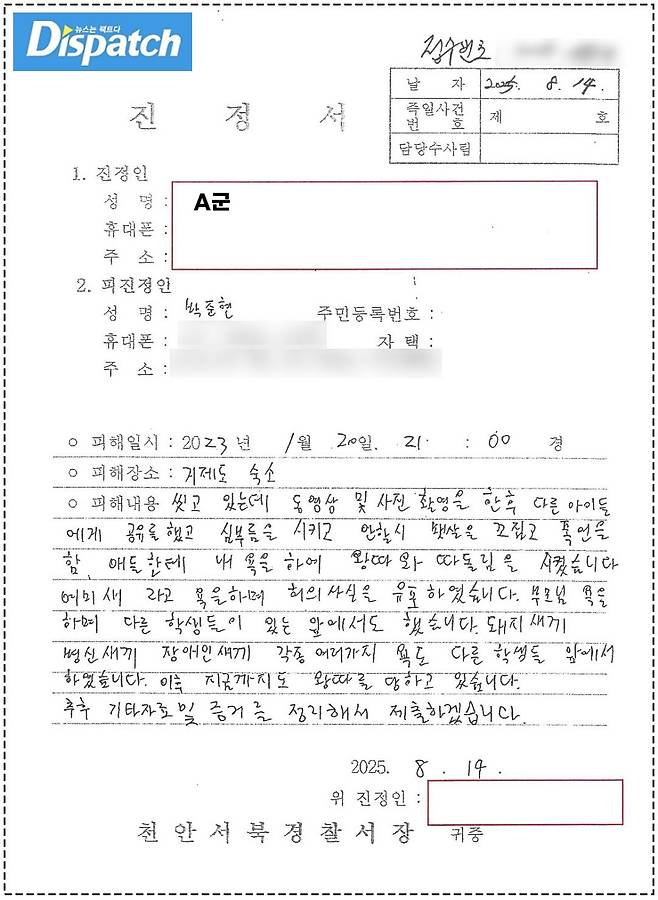 뉴스는 팩트다
Dispatch
접수번호
날 자 2025. 8. 14.
즉일사건
번 호 제 호
담당수사팀
진 정 서
1. 진정인
성 명 : A군
휴대폰 :
주 소 :
2. 피진정인
성 명 : 박준현 주민등록번호 :
휴대폰 : 자 택 :
주 소 :
○ 피해일시 : 2023년 1월 20일. 21 : 00 경
○ 피해장소 : 거제도 숙소
○ 피해내용 씻고 있는데 동영상 및 사진 촬영을 한후 다른 아이들
에게 공유를 했고 심부름을 시키고 안할시 뱃살을 꼬집고 폭언을
함. 애들한테 내 욕을 하여 왕따와 따돌림을 시켰습니다
여미새 라고 욕을하며 허의사실을 유포하였습니다. 부모님 욕을
하며 다른 학생들이 있는 앞에서도 했습니다. 돼지새끼
병신새끼 장애인새끼 각종 여러가지 욕도 다른 학생들 앞에서
하였습니다. 이후 지금까지도 왕따를 당하고 있습니다.
추후 기타자료및 증거를 정리해서 제출하겠습니다.
2025. 8. 14.
위 진정인 :
천안서북경찰서장 귀중